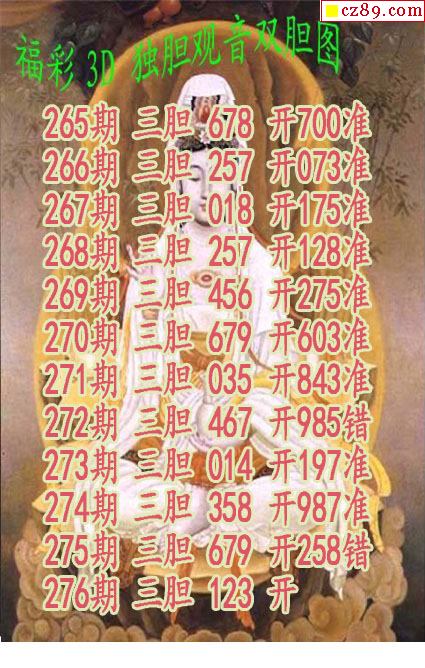 cz89.com
福彩 3D 独胆观音双胆图
265期 三胆 678 开700准
266期 三胆 257 开073准
267期 三胆 018 开175准
268期 三胆 257 开128准
269期 三胆 456 开275准
270期 三胆 679 开603准
271期 三胆 035 开843准
272期 三胆 467 开985错
273期 三胆 014 开197准
274期 三胆 358 开987准
275期 三胆 679 开258错
276期 三胆 123 开